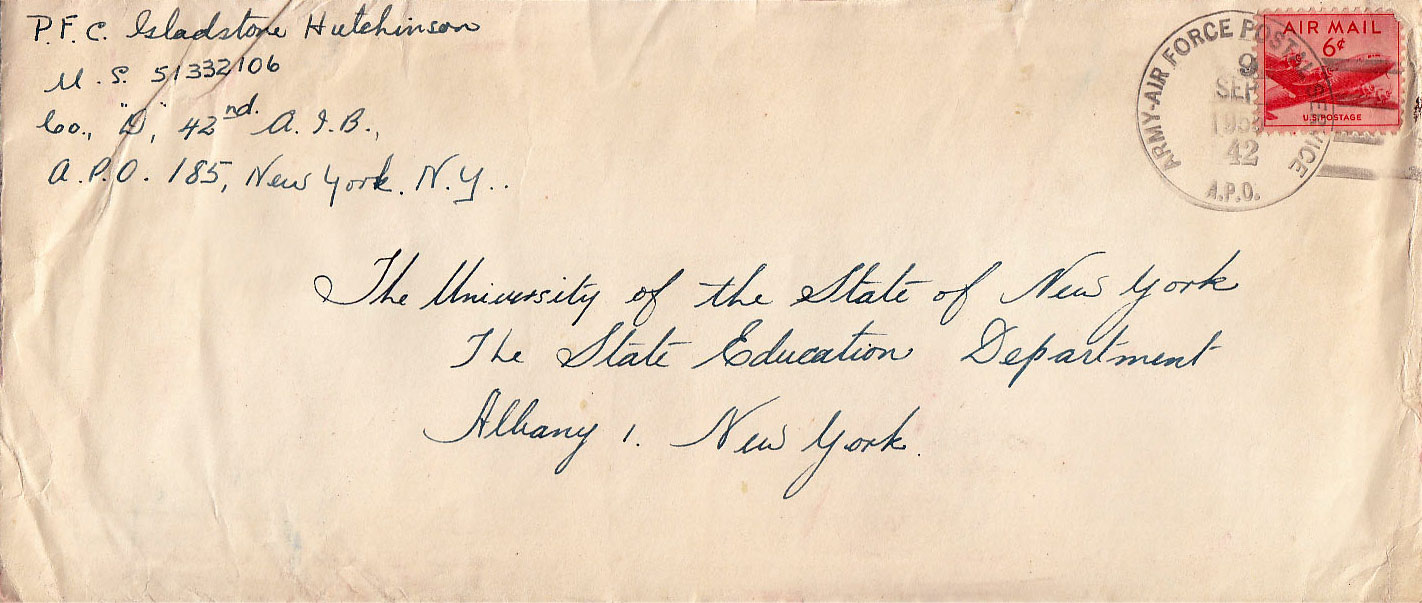 P.F.C. Gladstone Hutchinson
U.S. 51332106
Co., "D", 42nd. A.I.B.,
A.P.O. 185, New York. N.Y..
ARMY-AIR FORCE POSTAL SERVICE
9
SEP
42
A.P.O.
AIR MAIL
6¢
U.S. POSTAGE
The University of the State of New York
The State Education Department
Albany 1. New York.